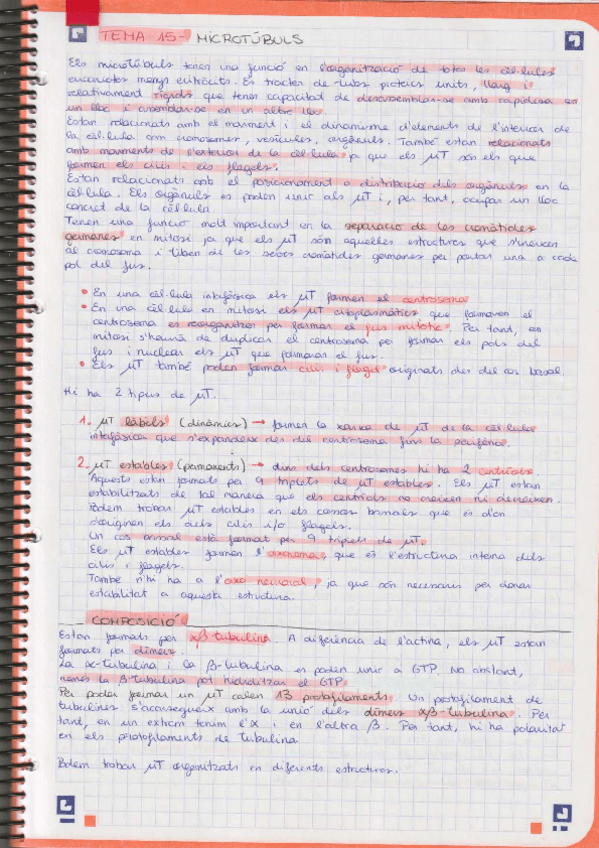 TEMA 15- MICROTÚBULS
Els microtúbuls tenen una funció en l'organització de totes les cèl·lules
eucariotes menys eritròcits. Es tracten de tubs proteics units, llarg i
relativament rígids que tenen capacitat de desensamblar-se amb rapidesa en
un lloc i ensamblar-se en un altre lloc.
Estan relacionats amb el moviment i el dinamisme d'elements de l'interior de
la cèl·lula com cromosomes, vesícules, orgànuls. També estan relacionats
amb moviments de l'exterior de la cèl·lula ja que els μT són els que
formen els cilis i els flagels.
Estan relacionats amb el posicionament o distribució dels orgànuls en la
cèl·lula. Els orgànuls es poden unir als μT i, per tant, ocupar un lloc
concret de la cèl·lula.
Tenen una funció molt important en la separació de les cromàtides
germanes en mitosi ja que els μT són aquelles estructures que s'uneixen
al cromosoma i tiben de les seves cromàtides germanes per portar una a cada
pol del fus.
• En una cèl·lula interfàsica els μT formen el centrosoma
• En una cèl·lula en mitosi els μT citoplasmàtics que formaven el
centrosoma es reorganitzen per formar el fus mitòtic. Per tant, en
mitosi s'haurà de duplicar el centrosoma per formar els pols del
fus i nuclear els μT que formaran el fus.
• Els μT també poden formar cilis i flagel originats des del cos basal.
Hi ha 2 tipus de μT.
1. μT làbils (dinàmics) → formen la xarxa de μT de la cèl·lula
interfàsica que s'expandeix des del centrosoma fins la perifèria.
2. μT estables (permanents) → dins dels centrosomes hi ha 2 centríols.
Aquests estan formats per 9 triplets de μT estables. Els μT estan
estabilitzats de tal manera que els centríols no creixen ni decreixen.
Podem trobar μT estables en els cossos basals que és d'on
s'originen els dels cilis i/o flagels.
Un cos basal està format per 9 triplets de μT.
Els μT estables formen l'axonema, que és l'estructura interna dels
cilis i flagels.
També n'hi ha a l'axó neuronal, ja que són necessaris per donar
estabilitat a aquesta estructura.
COMPOSICIÓ
Estan formats per αβ-tubulina. A diferència de l'actina, els μT estan
formats per dímers.
La α-tubulina i la β-tubulina es poden unir a GTP. No obstant,
només la β-tubulina pot hidrolitzar el GTP.
Per poder formar un μT calen 13 protofilaments. Un protofilament de
tubulines s'aconsegueix amb la unió dels dímers αβ-tubulina. Per
tant, en un extrem tenim l'α i en l'altra β. Per tant, hi ha polaritat
en els protofilaments de tubulina
Podem trobar μT organitzats en diferents estructures.